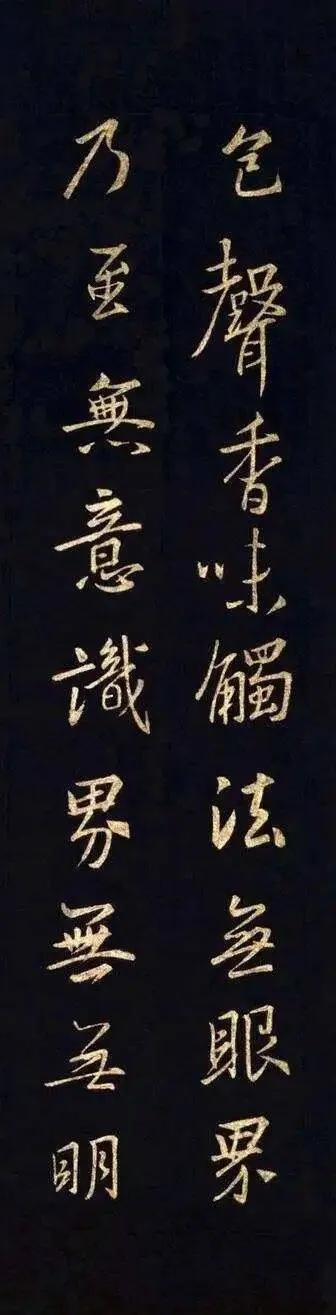 色聲香味觸法無眼界
乃至無意識界無無明